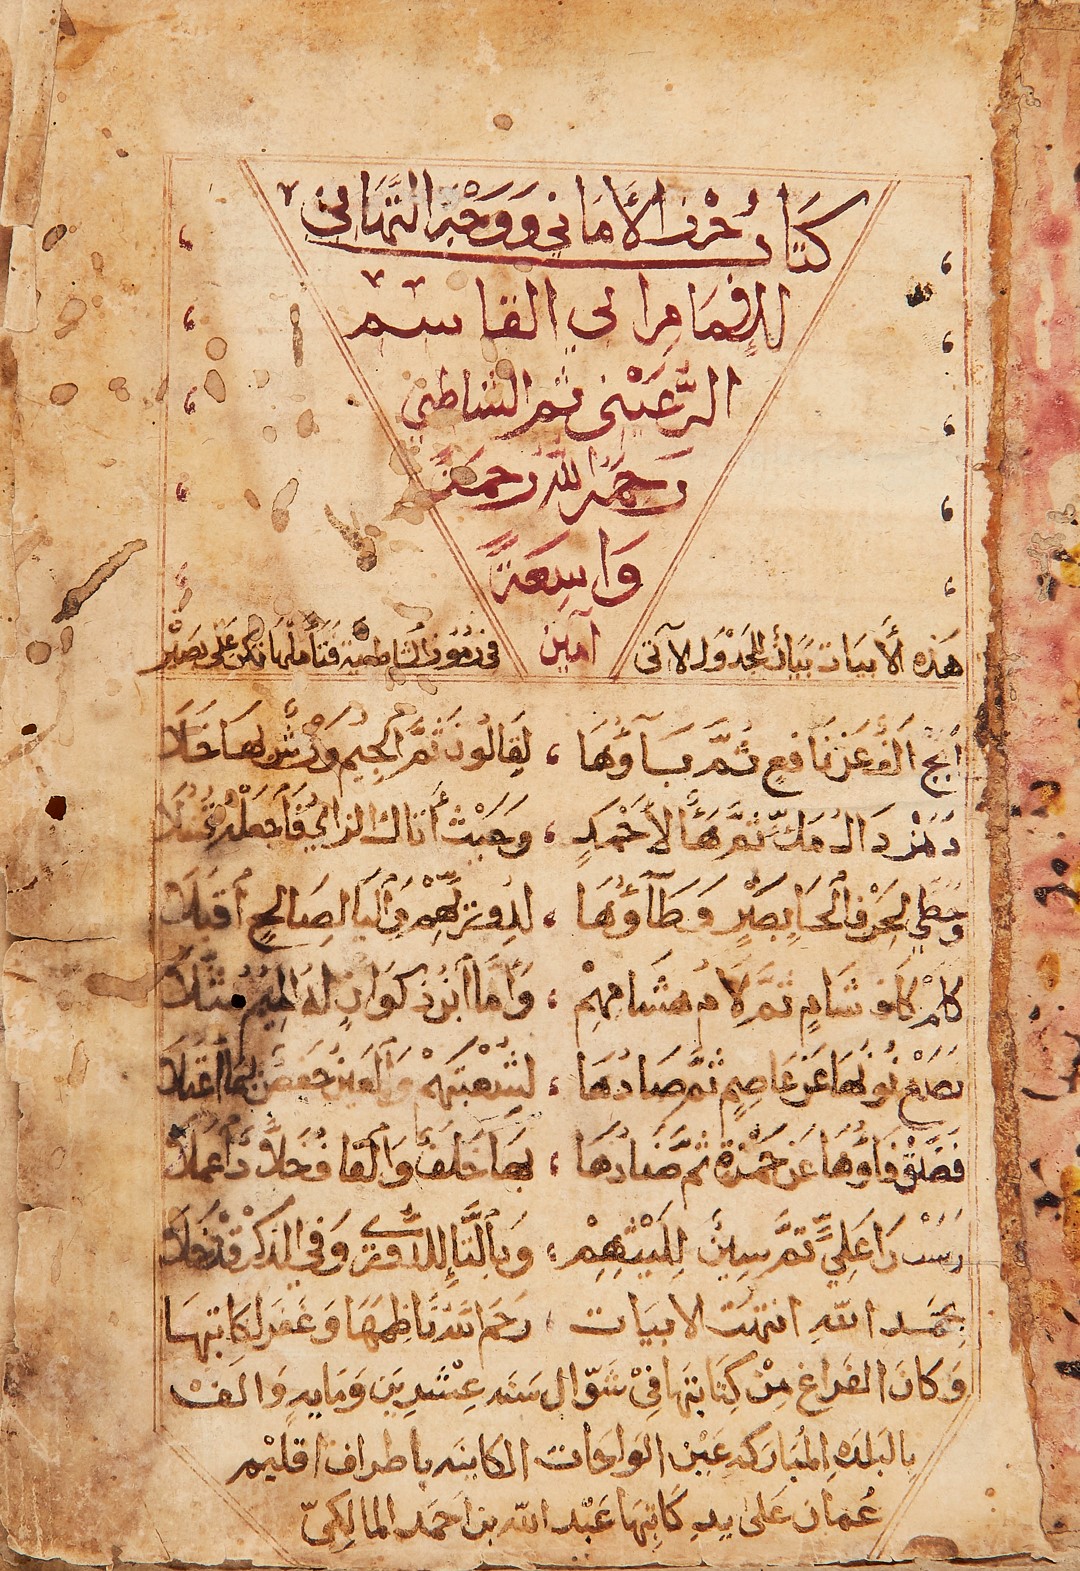 كتاب حرز الأماني ووجه التهاني
للإمام ابي القاسم
الرعيني ثم الشاطبي
رحمه الله رحمة
واسعة
آمين
هذه الأبيات بيان الجدول الآتي في رموز الشاطبية فتأملها تكن على بصير
أبج الف عن نافع ثم باؤها ، لقالون ثم الجيم ورش لها خلا
دهز دال مك ثم هاء لأحمد ، وحيث أتاك الزاي فاجعله قنبلا
وحطي لحرف الحا بصير وطاؤها ، لدوريهم واليا لصالح أقبلا
كلم كاف شام ثم لام هشامهم ، وأما ابن ذكوان له الميم مثلا
نصع نونها عن عاصم ثم صادها ، لشعبتهم والعين حفص بها اعتلا
فضق فاؤها عن حمزة ثم ضادها ، بها خلف والقاف خلاد أعملا
رست را علي ثم سين لليثهم ، وبالتا إلى الدوري وفي الذكر قد خلا
بحمد الله انتهت لابيات ، رحم الله ناظمها وغفر لكاتبها
وكان الفراغ من كتابتها في شوال سنه عشرين ومايه والف
بالبلده المباركه عين الواحات الكاينه باطراف اقليم
عمان على يد كاتبها عبد الله بن احمد المالكي